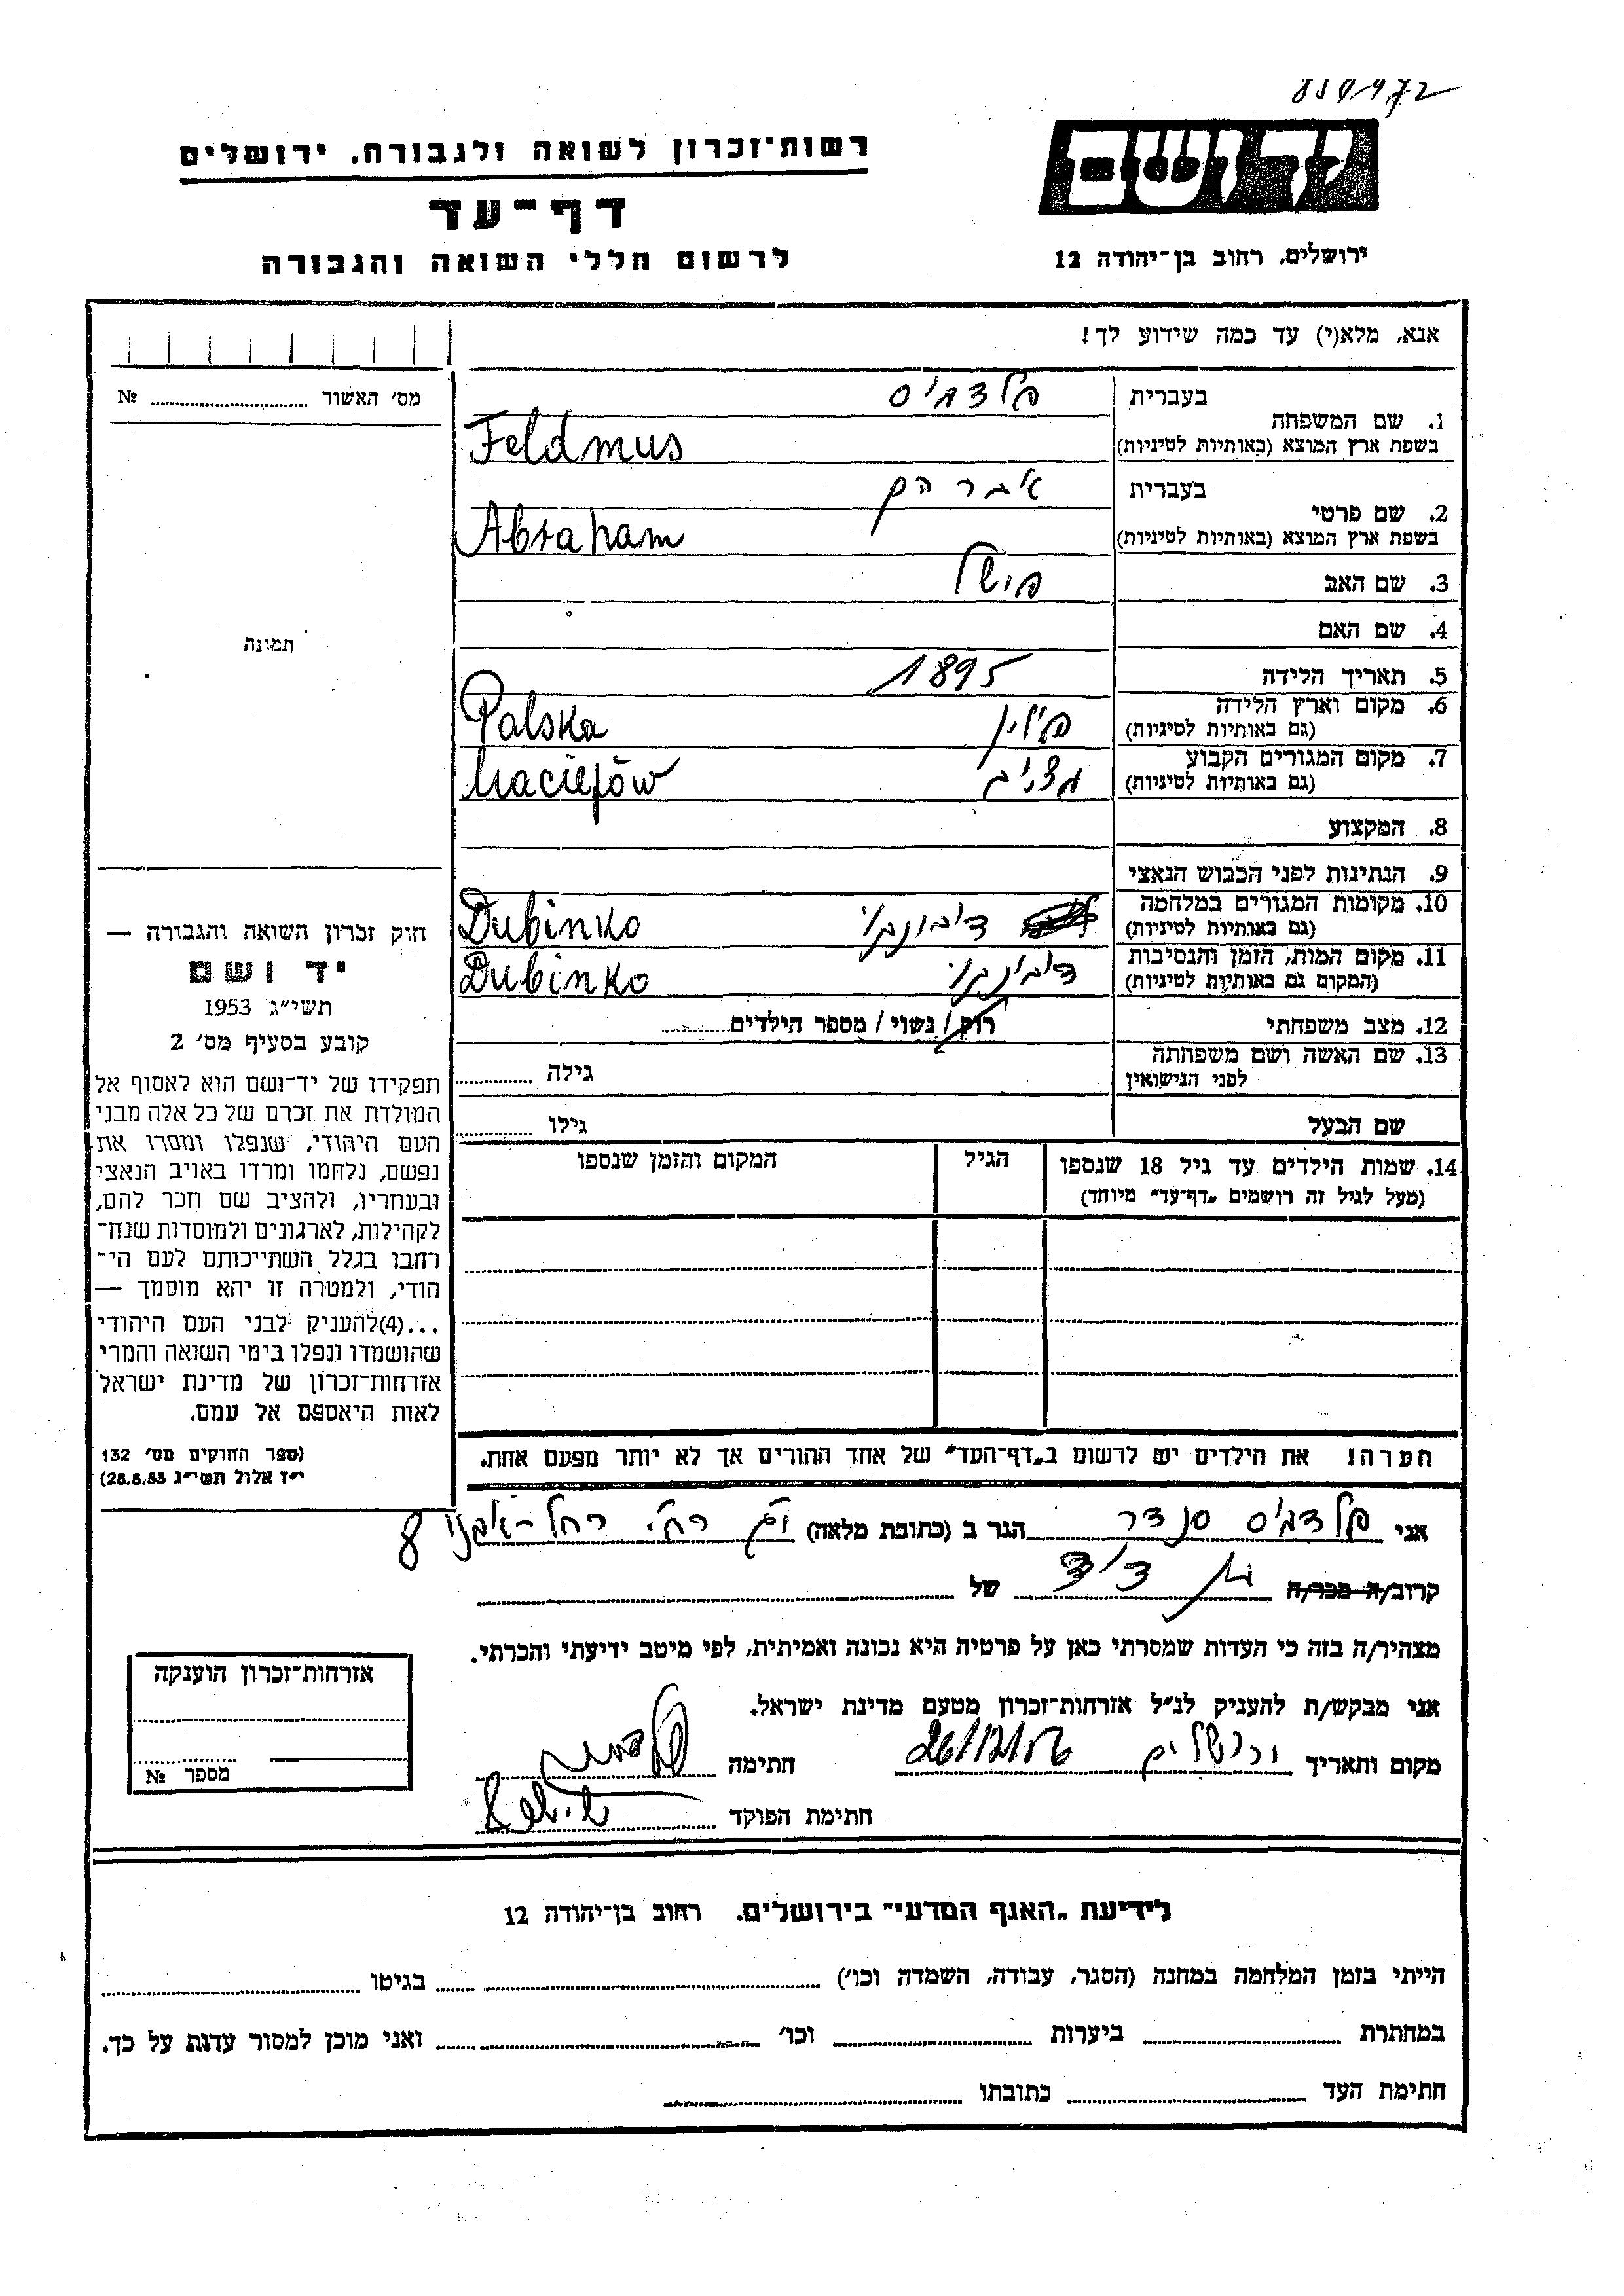 859/172
יד ושם
ירושלים, רחוב בן־יהודה 12
רשות־זכרון לשואה ולגבורה, ירושלים
דף־עד
לרשום חללי השואה והגבורה
אנא, מלא(י) עד כמה שידוע לך!
מס׳ האשור № 
תמונה
1. שם המשפחה
בעברית פלדמוס
בשפת ארץ המוצא (באותיות לטיניות) Feldmus
2. שם פרטי
בעברית אברהם
בשפת ארץ המוצא (באותיות לטיניות) Abraham
3. שם האב פישל
4. שם האם
5. תאריך הלידה 1895
6. מקום וארץ הלידה פולין
(גם באותיות לטיניות) Polska
7. מקום המגורים הקבוע
(גם באותיות לטיניות) Maciejów
8. המקצוע
9. הנתינות לפני הכבוש הנאצי
10. מקומות המגורים במלחמה
(גם באותיות לטיניות) Dubinko
11. מקום המות, הזמן והנסיבות
(המקום גם באותיות לטיניות) Dubinko
12. מצב משפחתי רווק / נשוי / מספר הילדים
13. שם האשה ושם משפחתה
לפני הנישואין גילה
שם הבעל גילו
14. שמות הילדים עד גיל 18 שנספו הגיל המקום והזמן שנספו
(מעל לגיל זה רושמים „דף־עד״ מיוחד)
הערה! את הילדים יש לרשום ב„דף־העד״ של אחד ההורים אך לא יותר מפעם אחת.
חוק זכרון השואה והגבורה —
יד ושם
תשי״ג 1953
קובע בסעיף מס׳ 2
תפקידו של יד־ושם הוא לאסוף אל
המולדת את זכרם של כל אלה מבני
העם היהודי, שנפלו ומסרו את
נפשם, נלחמו ומרדו באויב הנאצי
ובעוזריו, ולהציב שם וזכר להם,
לקהילות, לארגונים ולמוסדות שנח־
רבו בגלל השתייכותם לעם הי־
הודי, ולמטרה זו יהא מוסמך —
...(4)להעניק לבני העם היהודי
שהושמדו ונפלו בימי השואה והמרי
אזרחות־זכרון של מדינת ישראל
לאות היאספם אל עמם.
(ספר החוקים מס׳ 132
י״ז אלול תשי״ג 28.8.53)
אני פלדמוס סנדר הגר ב (כתובת מלאה)
קרוב/ה מכר/ה בן דוד של
מצהיר/ה בזה כי העדות שמסרתי כאן על פרטיה היא נכונה ואמיתית, לפי מיטב ידיעתי והכרתי.
אני מבקש/ת להעניק לנ״ל אזרחות־זכרון מטעם מדינת ישראל.
מקום ותאריך ירושלים 26/12/56 חתימה
חתימת הפוקד
אזרחות־זכרון הוענקה
מספר №
לידיעת „האגף המדעי״ בירושלים. רחוב בן־יהודה 12
הייתי בזמן המלחמה במחנה (הסגר, עבודה, השמדה וכו׳) בגיטו
במחתרת ביערות וכו׳ ואני מוכן למסור עדות על כך.
חתימת העד כתובתו